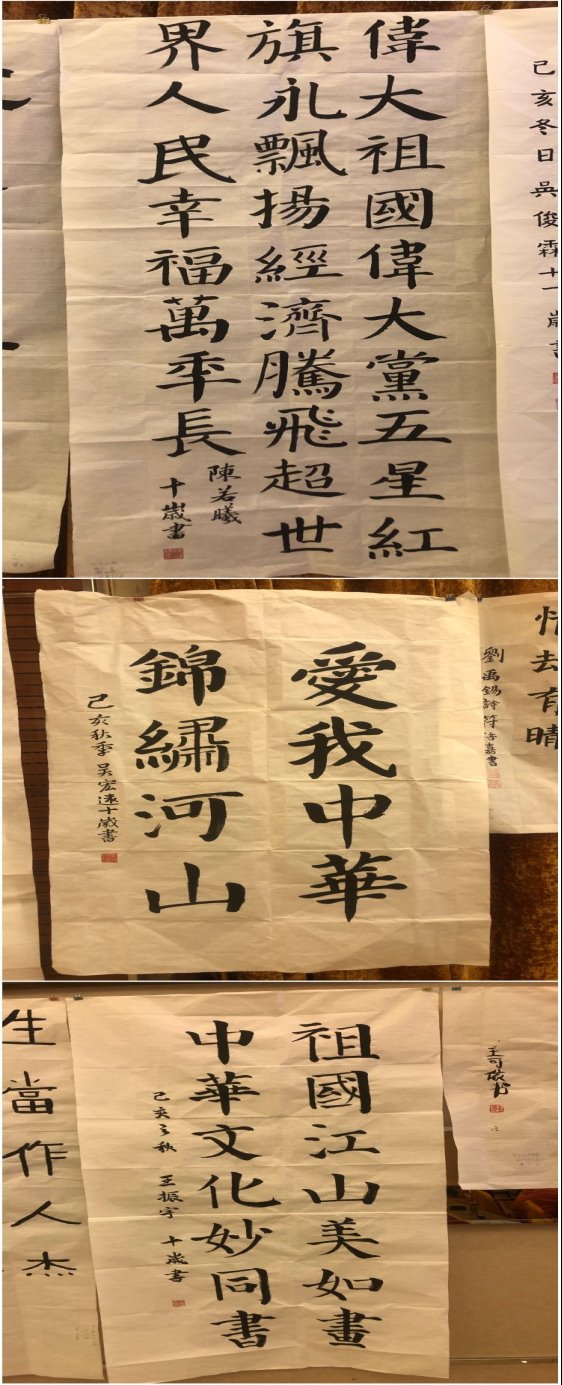 己亥冬日吳俊霖十一歲書
偉大祖國偉大黨五星紅
旗永飄揚經濟騰飛超世
界人民幸福萬年長
陳若曦
十歲書
情却有晴
劉禹錫詩
愛我中華
錦繡河山
己亥秋季吴宏遠十歲書
祖國江山美如畫
中華文化妙同書
己亥之秋 王振宇 十歲書
生當作人杰